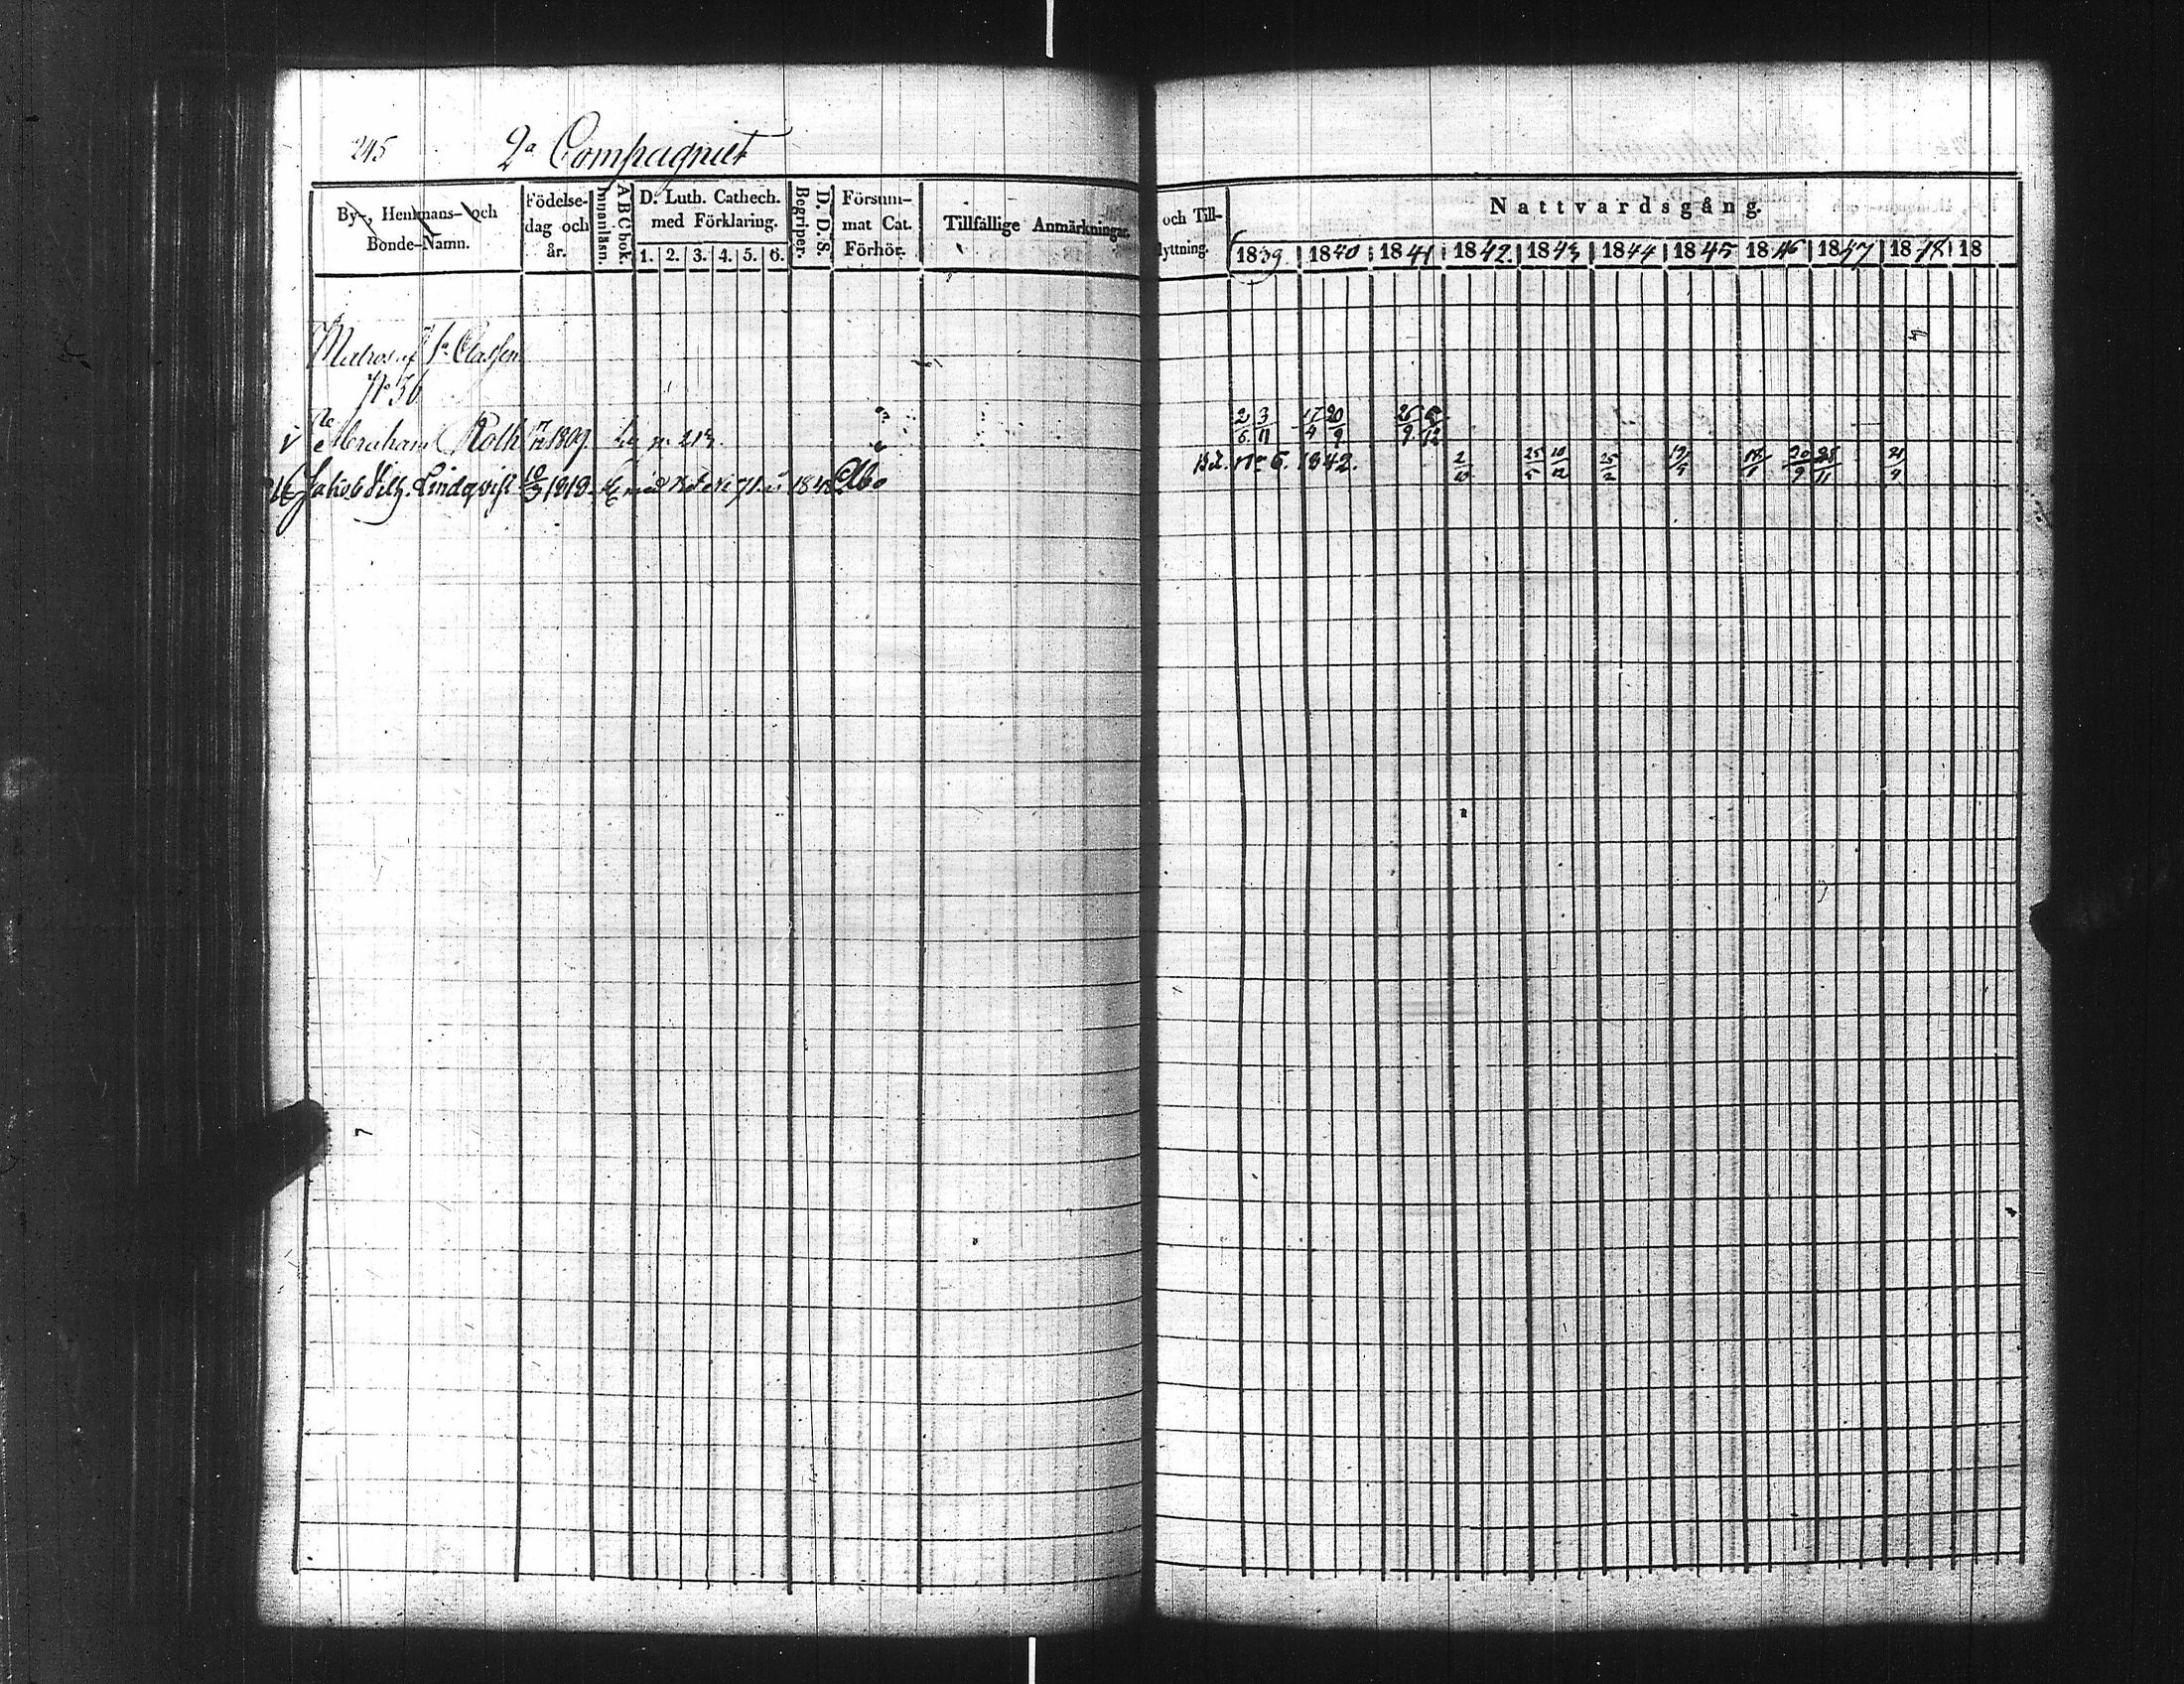 245 2a Compagniet
By-, Hemmans- och Bonde-Namn. Födelse-dag och år. A B C bok. Innanläsn. D. Luth. Cathech. med Förklaring. 1. 2. 3. 4. 5. 6. D. D. S. Begriper. Försum-mat Cat. Förhör. Tillfällige Anmärkningar. och Till- lyttning. Nattvardsgång.
1839 1840 1841 1842 1843 1844 1845 1846 1847 1848 18
Matros af 1a Classen
No 56
Abraham Roth 1809 2/6 3/11 17/4 20/9 26/9
Jakob Vilh. Lindqvist 1818 1842 Åbo No 6. 1842. 2/10 25/5 10/12 25/2 20/9 28/11